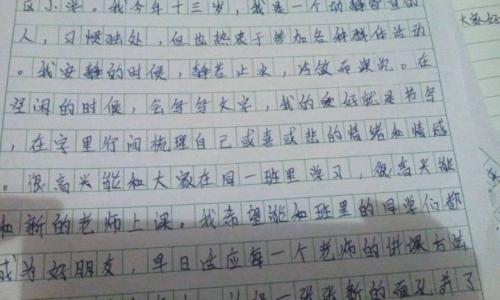 小 。我今年十三岁，我是一个动静皆宜的
人，习惯独处，但也热衷于参加各种群体活动
。我安静的时候，静若止水，沉敛而深沉。在
空闲的时候，会写写文字，我的爱好就是书写
，在字里行间梳理自己或喜或悲的情绪和情感
。很高兴能和大家在同一班里学习，很高兴能
和新的老师上课。我希望能和班里的同学们都
成为好朋友，早日适应每一个老师的讲课方法
一张张新的面孔
大家好